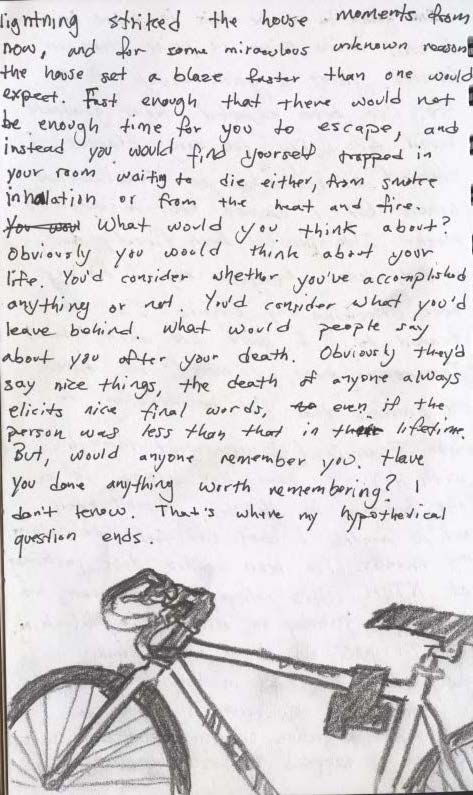 lightning striked the house moments from
now, and for some miraculous unknown reason
the house set a blaze faster than one would
expect. Fast enough that there would not
be enough time for you to escape, and
instead you would find yourself trapped in
your room waitig to die either, from smoke
inhalation or from the heat and fire.
You wou What would you think about?
Obviously you would think about your
life. You'd consider whether you've accomplished
anything or not. You'd consider what you'd
leave behind. What would people say
about you after your death. Obviously they'd
say nice things, the death of anyone always
elicits nice final words, even if the
person was less than that in their lifetime.
But, would anyone remember you. Have
you done anything worth remembering? I
don't know. That's where my hypothetical
question ends.